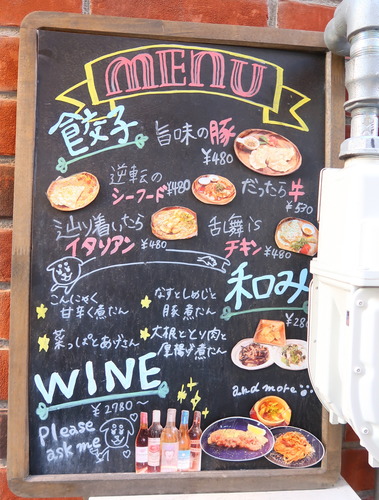 MENU
餃子
旨味の豚
¥480
逆転の
シーフード ¥480
だったら牛
¥530
辿り着いたら
イタリアン ¥480
乱舞is
チキン ¥480
和み
¥280
こんにゃく
甘辛く煮たん
なすとしめじと
豚煮たん
菜っぱとあげさん
大根ととり肉と
厚揚げ煮たん
WINE
¥2780~
Please
ask me
and more